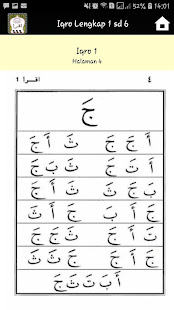 52% 14:01
Iqro Lengkap 1 sd 6
Iqro 1
Halaman 4
٤ اقرا ١
جَ
أَ جَ جَ ثَ أَ جَ
أَ تَ جَ ثَ بَ جَ
بَ ثَ جَ جَ أَ ثَ
جَ أَ بَ جَ أَ ثَ
جَ تَ أَ ثَ جَ جَ
جَ أَ جَ ثَ ثَ جَ
أَ بَ تَ ثَ جَ